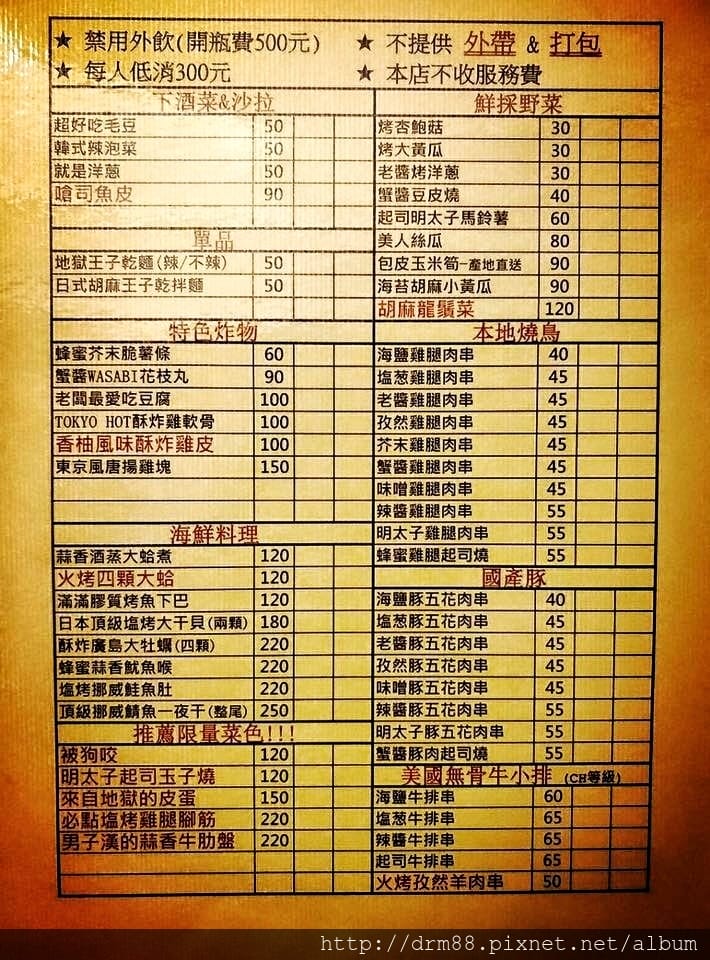 ★ 禁用外飲(開瓶費500元) ★ 不提供 外帶 & 打包
★ 每人低消300元 ★ 本店不收服務費
下酒菜&沙拉
超好吃毛豆 50
韓式辣泡菜 50
就是洋蔥 50
嗆司魚皮 90
單品
地獄王子乾麵(辣/不辣) 50
日式胡麻王子乾拌麵 50
特色炸物
蜂蜜芥末脆薯條 60
蟹醬WASABI花枝丸 90
老闆最愛吃豆腐 100
TOKYO HOT酥炸雞軟骨 100
香柚風味酥炸雞皮 100
東京風唐揚雞塊 150
海鮮料理
蒜香酒蒸大蛤煮 120
火烤四顆大蛤 120
滿滿膠質烤魚下巴 120
日本頂級塩烤大干貝(兩顆) 180
酥炸廣島大牡蠣(四顆) 220
蜂蜜蒜香魷魚喉 220
塩烤挪威鮭魚肚 220
頂級挪威鯖魚一夜干(整尾) 250
推薦限量菜色!!!
被狗咬 120
明太子起司玉子燒 120
來自地獄的皮蛋 150
必點塩烤雞腿腳筋 220
男子漢的蒜香牛肋盤 220
鮮採野菜
烤杏鮑菇 30
烤大黃瓜 30
老醬烤洋蔥 30
蟹醬豆皮燒 40
起司明太子馬鈴薯 60
美人絲瓜 80
包皮玉米筍-產地直送 90
海苔胡麻小黃瓜 90
胡麻龍鬚菜 120
本地燒鳥
海鹽雞腿肉串 40
塩葱雞腿肉串 45
老醬雞腿肉串 45
孜然雞腿肉串 45
芥末雞腿肉串 45
蟹醬雞腿肉串 45
味噌雞腿肉串 45
辣醬雞腿肉串 55
明太子雞腿肉串 55
蜂蜜雞腿起司燒 55
國產豚
海鹽豚五花肉串 40
塩葱豚五花肉串 45
老醬豚五花肉串 45
孜然豚五花肉串 45
味噌豚五花肉串 45
辣醬豚五花肉串 55
明太子豚五花肉串 55
蟹醬豚肉起司燒 55
美國無骨牛小排 (CH等級)
海鹽牛排串 60
塩葱牛排串 65
辣醬牛排串 65
起司牛排串 65
火烤孜然羊肉串 50
http://drm88.pixnet.net/album